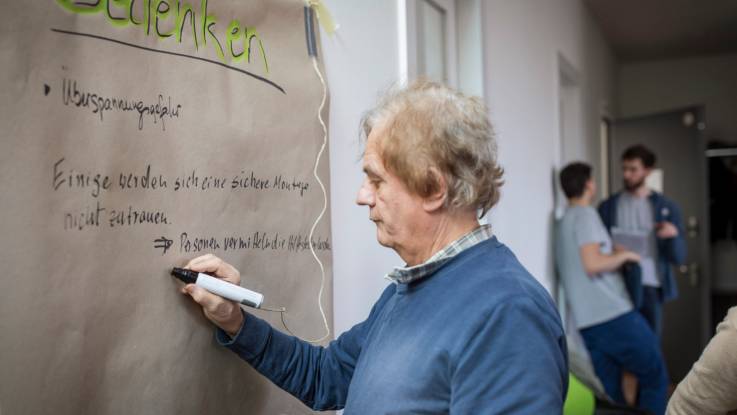 Bedenken
• Überspannungsgefahr
Einige werden sich eine sichere Montage
nicht zutrauen.
⇒ Personen vermitteln die